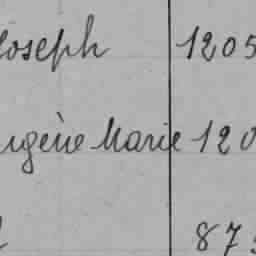 Joseph 1205
Eugène Marie 120
87